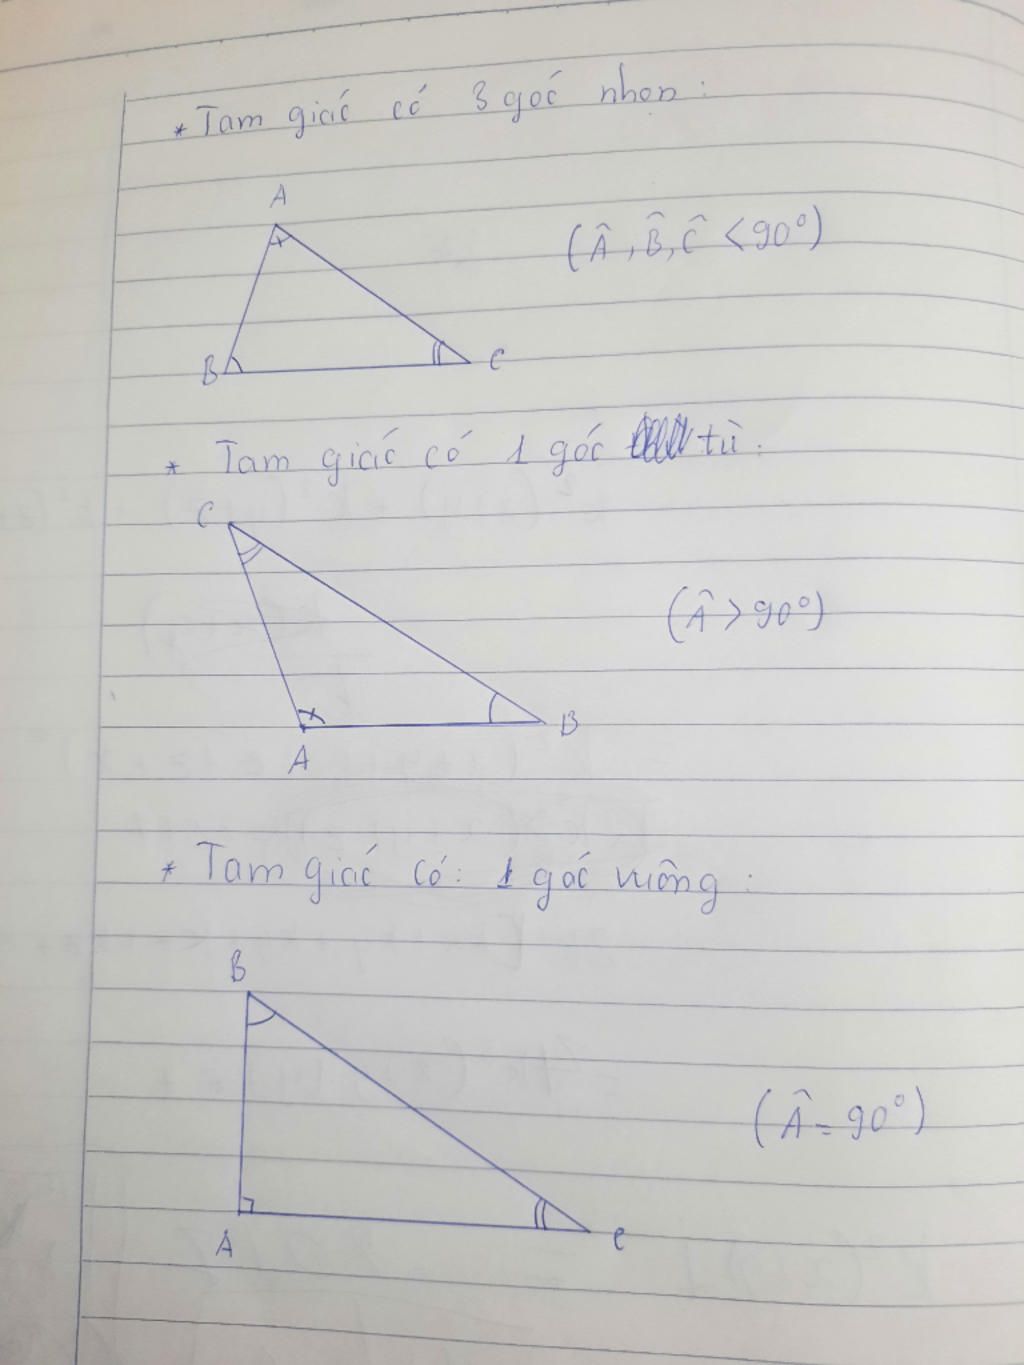 * Tam giác có 3 góc nhọn:
A
(Â, B̂, Ĉ < 90°)
B
C
* Tam giác có 1 góc tù:
C
(Â > 90°)
B
A
* Tam giác có: 1 góc vuông:
B
(Â = 90°)
A
C